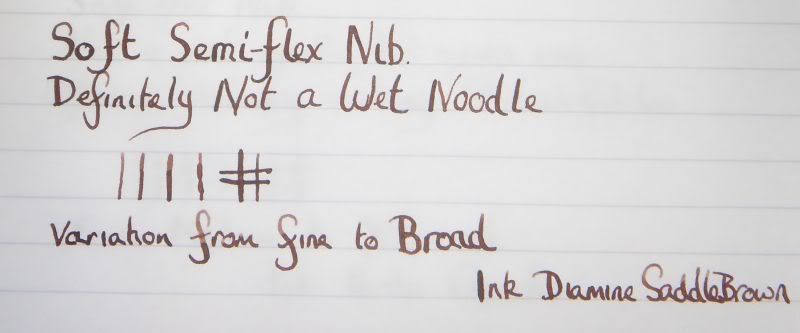 Soft Semi-flex Nib.
Definitely Not a Wet Noodle
Variation from fine to Broad
Ink Diamine SaddleBrown